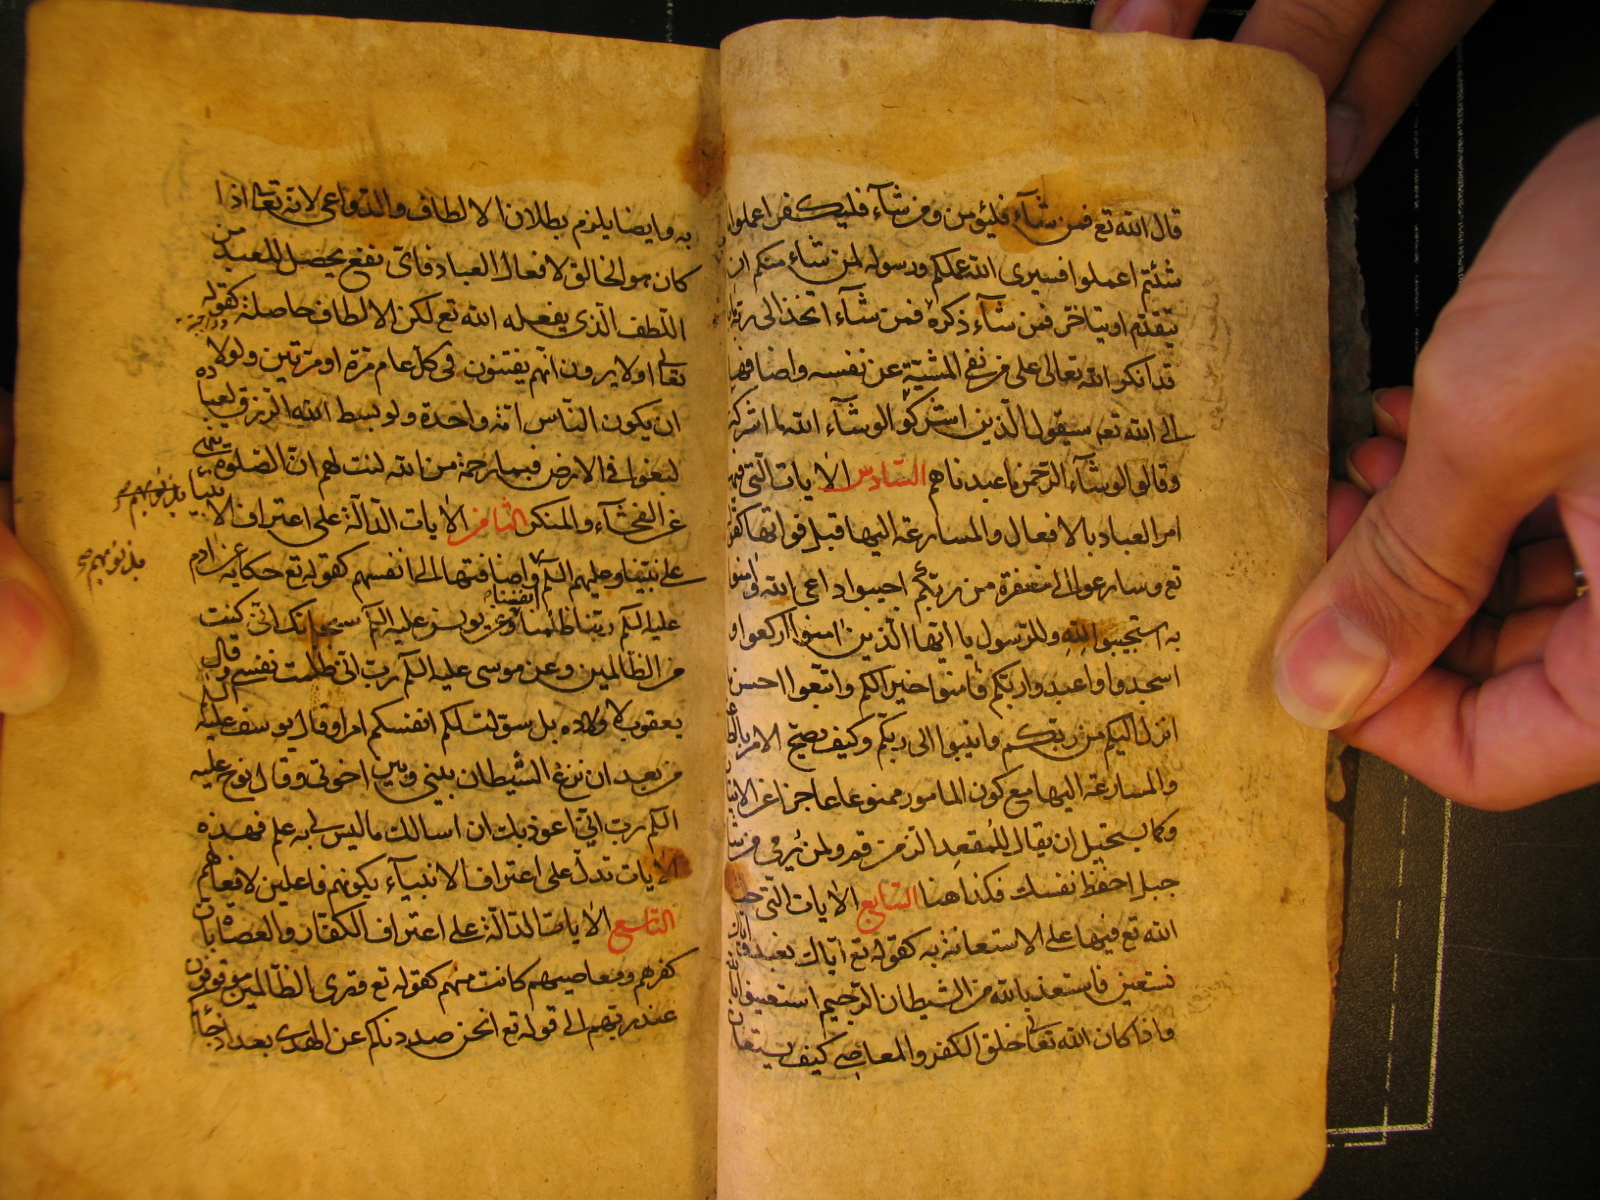 قال الله تع فمن شآء فليؤمن ومن شآء فليكفر اعملوا
شئتم اعملوا فسيرى الله عملكم ورسوله لمن شاء منكم ان
يتقدم او يتاخر فمن شآء ذكره فمن شآء اتخذ الى ربه
قد انكر الله تعالى على من نفى المشية عن نفسه واضافها
الى الله تعم سيقول الذين اشركوا لو شآء الله ما اشركنا
وقالوا لو شآء الرحمن ما عبدناهم السادس الايات التى فيها
امر العباد بالافعال والمسارعة اليها قبل فواتها كقوله
تع وسارعوا الى مغفرة من ربكم اجيبوا داعى الله وامنوا
به استجيبوا لله وللرسول يا ايها الذين امنوا اركعوا و
اسجدوا واعبدوا ربكم فامنوا خيرا لكم واتبعوا احسن ما
انزل اليكم من ربكم وانيبوا الى ربكم وكيف يصح الامر بالطاعة
والمسارعة اليها مع كون المامور ممنوعا عاجزا عن الاتيان
وكما يستحيل ان يقال للمقعد الزمن قم ولمن يرمى من شاهق
جبل احفظ نفسك فكذا هنا السابع الايات التى حث
الله تع فيها على الاستعانة به كقوله تع اياك نعبد واياك
نستعين فاستعذ بالله من الشيطان الرجيم استعينوا بالله
واذا كان الله تعا خلق الكفر والمعاصى كيف يستعان
به وايضا يلزم بطلان الالطاف والدواعى لانه تعا اذا
كان هو الخالق لافعال العباد فاى نفع يحصل للعبد من
اللطف الذى يفعله الله تع لكن الالطاف حاصلة كقوله
تعالى اولا يرون انهم يفتنون فى كل عام مرة او مرتين ولولا
ان يكون الناس امة واحدة ولو بسط الله الرزق لعباده
لبغوا فى الارض فبما رحمة من الله لنت لهم ان الصلوة تنهى
عن الفحشآء والمنكر الثامن الايات الدالة على اعتراف الانبيا
بذنوبهم
على نبينا وعليهم السلم واضافتها الى انفسهم كقوله تع حكاية عن ادم
بذنوبهم
عليه السلم ربنا ظلمنا انفسنا وعن يونس عليه السلم سبحانك انى كنت
من الظالمين وعن موسى عليه السلم رب انى ظلمت نفسى وقال
يعقوب لاولاده بل سولت لكم انفسكم امرا وقال يوسف عليه السلم
من بعد ان نزغ الشيطان بينى وبين اخوتى وقال نوح عليه
السلم رب انى اعوذ بك ان اسالك ما ليس لى به علم فهذه
الايات تدل على اعتراف الانبياء بكونهم فاعلين لافعالهم
التاسع الايات الدالة على اعتراف الكفار والعصاة بان
كفرهم ومعاصيهم كانت منهم كقوله تع وترى الظالمين موقوفون
عند ربهم الى قوله تع انحن صددناكم عن الهدى بعد اذ جآءكم